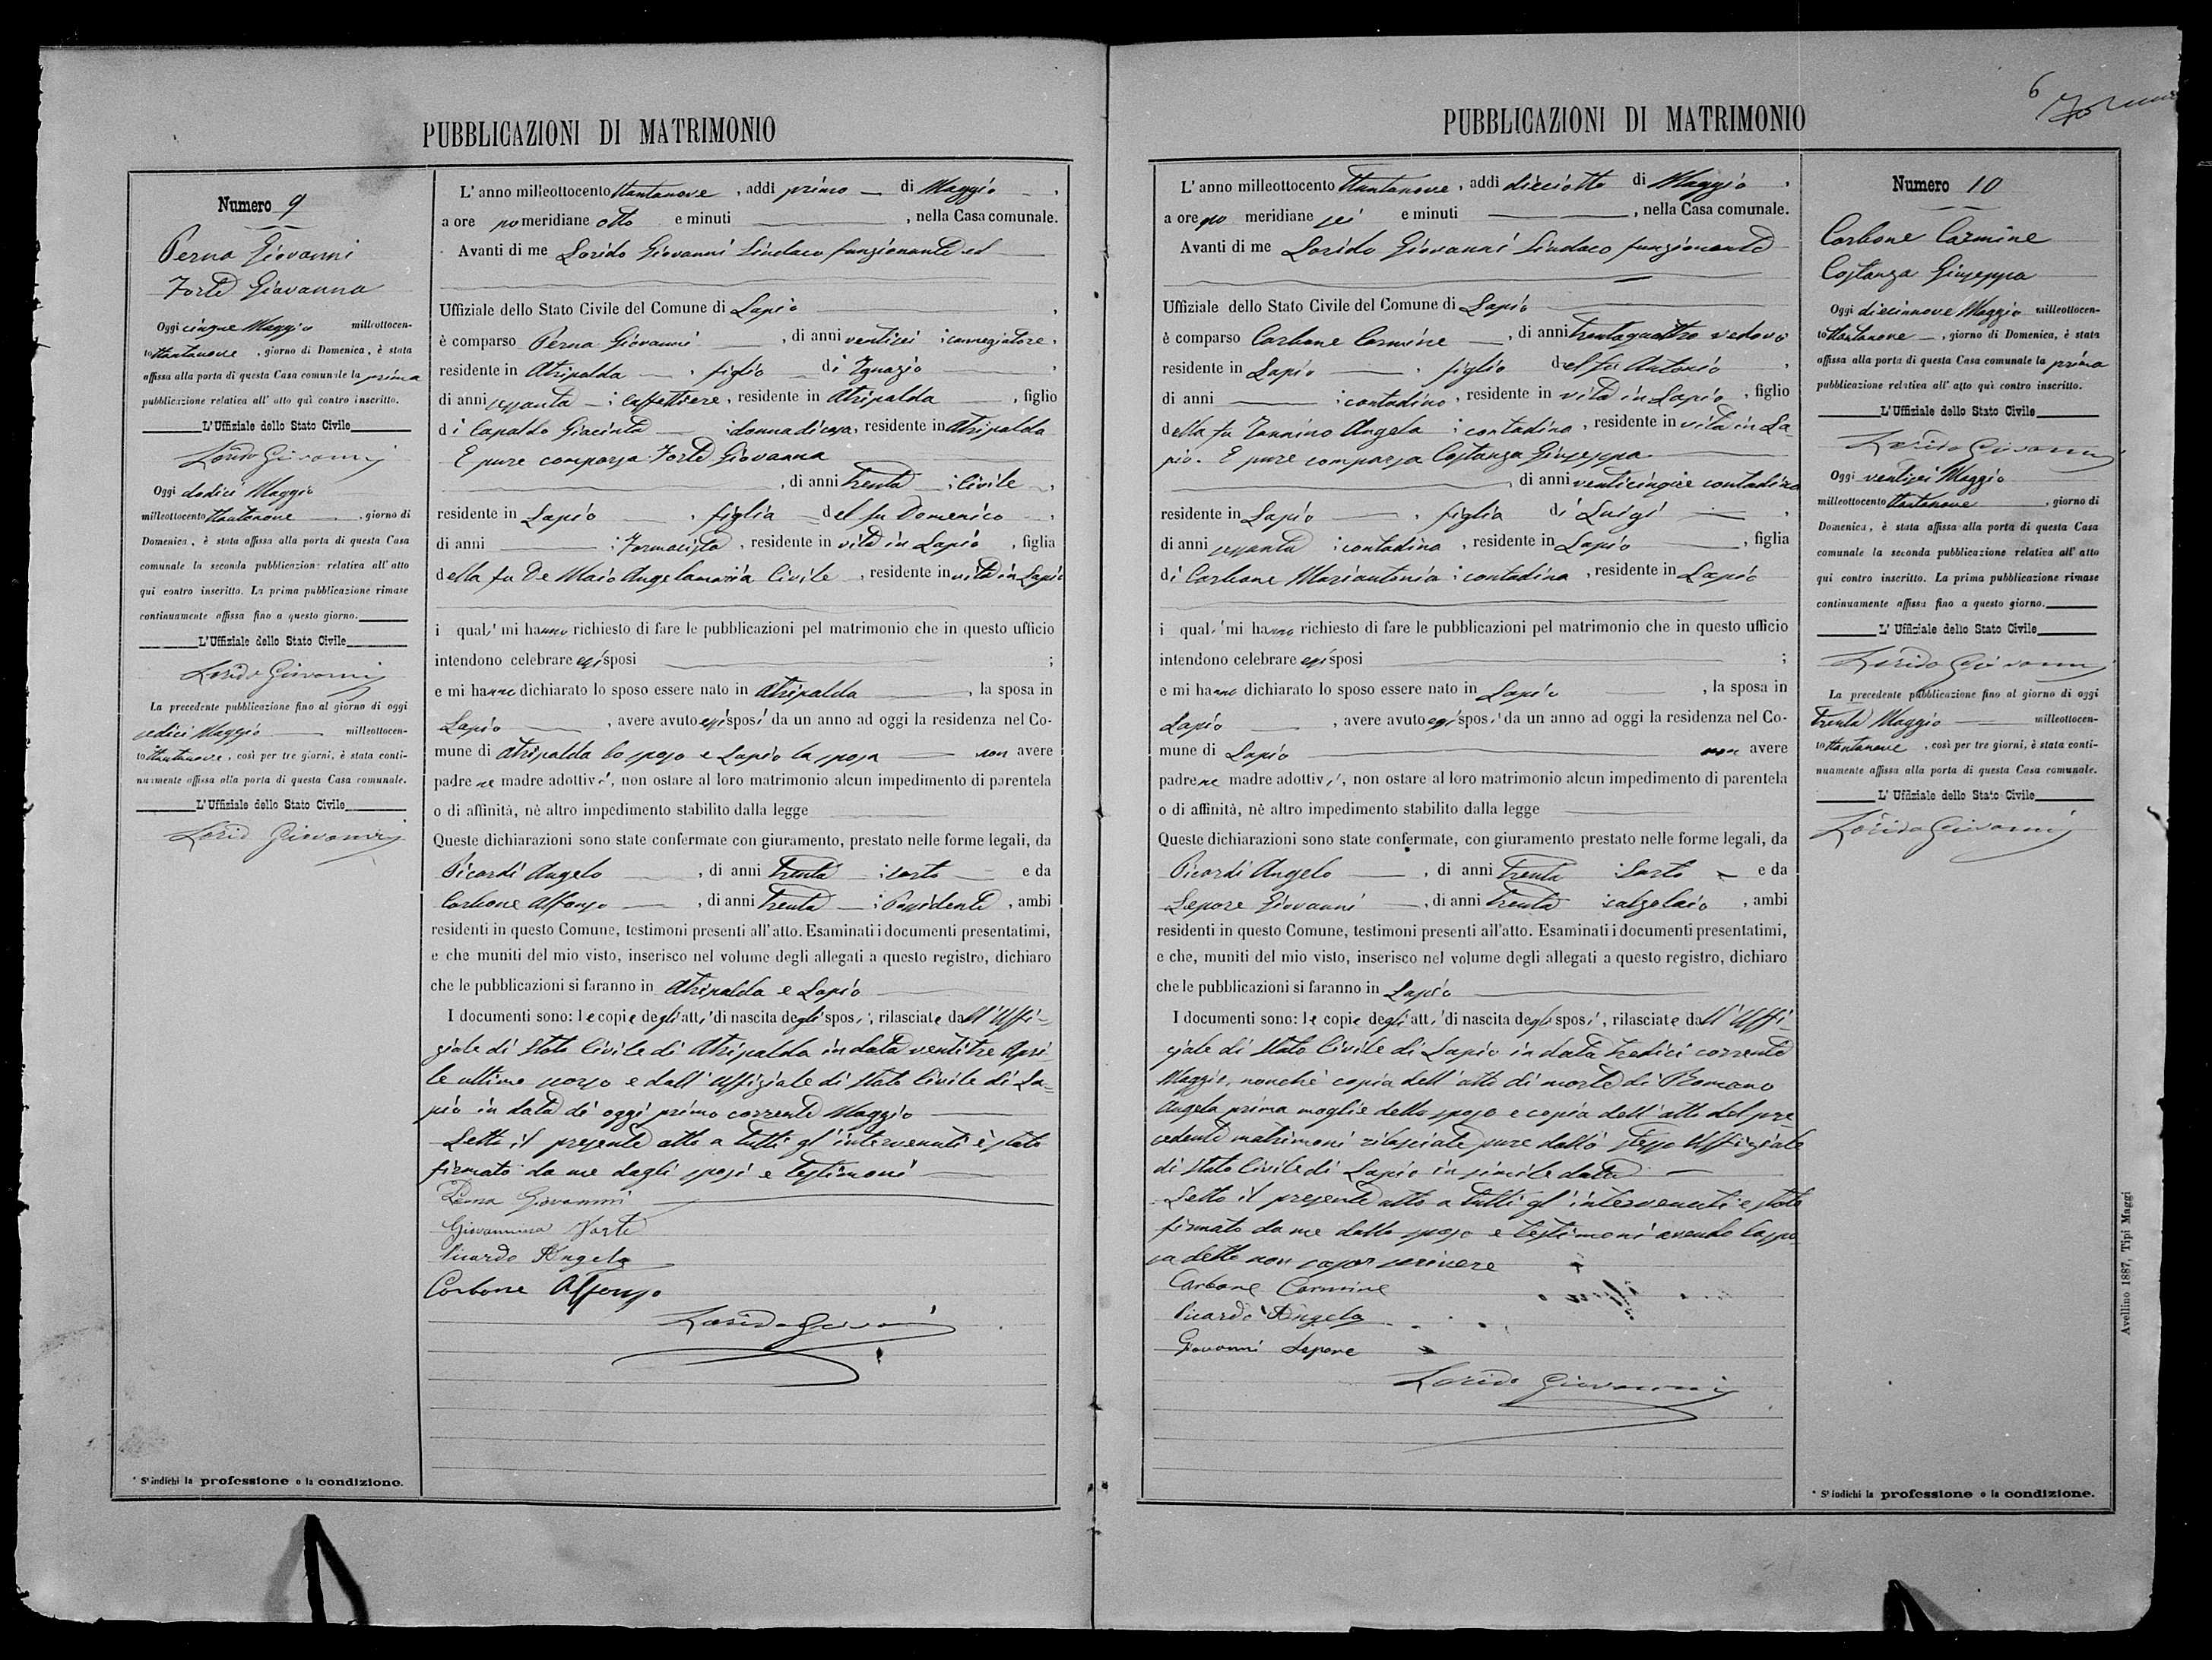 PUBBLICAZIONI DI MATRIMONIO
Numero 9
Perna Giovanni
Forte Giovanna
Oggi cinque Maggio milleottocen-
to ttantanove, giorno di Domenica, è stata
affissa alla porta di questa Casa comunale la prima
pubblicazione relativa all'atto quì contro inscritto.
L'Uffiziale dello Stato Civile
Lorido Giovanni
Oggi dodici Maggio
milleottocento ttantanove, giorno di
Domenica, è stata affissa alla porta di questa Casa
comunale la seconda pubblicazione relativa all'atto
qui contro inscritto. La prima pubblicazione rimase
continuamente affissa fino a questo giorno.
L'Uffiziale dello Stato Civile
Lorido Giovanni
La precedente pubblicazione fino al giorno di oggi
sedici Maggio milleottocen-
to ttantanove, così per tre giorni, è stata conti-
nuamente affissa alla porta di questa Casa comunale.
L'Uffiziale dello Stato Civile
Lorido Giovanni
* S'indichi la professione o la condizione.
L'anno milleottocento ttantanove, addi primo di Maggio,
a ore pomeridiane otto e minuti, nella Casa comunale.
Avanti di me Lorido Giovanni Sindaco funzionante ed
Uffiziale dello Stato Civile del Comune di Lapio,
è comparso Perna Giovanni, di anni ventisei,
residente in Atripalda, figlio di Ignazio,
di anni sessanta caffettiere, residente in Atripalda, figlio
di Capaldo Giacinta donna di casa, residente in Atripalda
E pure comparsa Forte Giovanna
, di anni trenta civile,
residente in Lapio, figlia del fu Domenico,
di anni Farmacista, residente in vita in Lapio, figlia
della fu De Maio Angelamaria Civile, residente in vita in Lapio
i quali mi hanno richiesto di fare le pubblicazioni pel matrimonio che in questo ufficio
intendono celebrare essi sposi ;
e mi hanno dichiarato lo sposo essere nato in Atripalda, la sposa in
Lapio, avere avuto essi sposi da un anno ad oggi la residenza nel Co-
mune di Atripalda lo sposo e Lapio la sposa non avere
padre ne madre adottivi, non ostare al loro matrimonio alcun impedimento di parentela
o di affinità, nè altro impedimento stabilito dalla legge
Queste dichiarazioni sono state confermate con giuramento, prestato nelle forme legali, da
Picardi Angelo, di anni trenta sarto e da
Carbone Alfonso, di anni trenta Possidente, ambi
residenti in questo Comune, testimoni presenti all'atto. Esaminati i documenti presentatimi,
e che muniti del mio visto, inserisco nel volume degli allegati a questo registro, dichiaro
che le pubblicazioni si faranno in Atripalda e Lapio
I documenti sono: le copie degli atti di nascita degli sposi, rilasciate dall'Uffi-
ziale di Stato Civile di Atripalda in data ventitre Apri-
le ultimo scorso e dall'Uffiziale di Stato Civile di La-
pio in data di oggi primo corrente Maggio
Letto il presente atto a tutti gl'intervenuti è stato
firmato da me dagli sposi e testimoni
Perna Giovanni
Giovannina Forte
Picardo Angelo
Carbone Alfonso
Lorido Giovanni
PUBBLICAZIONI DI MATRIMONIO
6
L'anno milleottocento ttantanove, addi dieciotto di Maggio,
a ore po meridiane sei e minuti, nella Casa comunale.
Avanti di me Lorido Giovanni Sindaco funzionante
Uffiziale dello Stato Civile del Comune di Lapio
è comparso Carbone Carmine, di anni trentaquattro vedovo
residente in Lapio, figlio del fu Antonio,
di anni contadino, residente in vita in Lapio, figlio
della fu Iannino Angela contadina, residente in vita in La-
pio. E pure comparsa Costanza Giuseppa
, di anni venticinque contadina
residente in Lapio, figlia di Luigi,
di anni sessanta contadino, residente in Lapio, figlia
di Carbone Mariantonia contadina, residente in Lapio
i quali mi hanno richiesto di fare le pubblicazioni pel matrimonio che in questo ufficio
intendono celebrare essi sposi ;
e mi hanno dichiarato lo sposo essere nato in Lapio, la sposa in
Lapio, avere avuto essi sposi da un anno ad oggi la residenza nel Co-
mune di Lapio non avere
padre ne madre adottivi, non ostare al loro matrimonio alcun impedimento di parentela
o di affinità, nè altro impedimento stabilito dalla legge
Queste dichiarazioni sono state confermate, con giuramento prestato nelle forme legali, da
Picardi Angelo, di anni trenta Sarto e da
Lepore Giovanni, di anni trenta calzolaio, ambi
residenti in questo Comune, testimoni presenti all'atto. Esaminati i documenti presentatimi,
e che, muniti del mio visto, inserisco nel volume degli allegati a questo registro, dichiaro
che le pubblicazioni si faranno in Lapio
I documenti sono: le copie degli atti di nascita degli sposi, rilasciate dall'Uffi-
ziale di Stato Civile di Lapio in data tredici corrente
Maggio, nonchè copia dell'atto di morte di Romano
Angela prima moglie dello sposo e copia dell'atto del pre
cedente matrimoni rilasciate pure dallo stesso Uffiziale
di Stato Civile di Lapio in simile data
Letto il presente atto a tutti gl'intervenuti è stato
firmato da me dallo sposo e testimoni avendo la spo
sa detto non saper scrivere
Carbone Carmine
Picardo Angelo
Giovanni Lepore
Lorido Giovanni
Numero 10
Carbone Carmine
Costanza Giuseppa
Oggi diecinnove Maggio milleottocen-
to ttantanove, giorno di Domenica, è stata
affissa alla porta di questa Casa comunale la prima
pubblicazione relativa all'atto quì contro inscritto.
L'Uffiziale dello Stato Civile
Lorido Giovanni
Oggi ventisei Maggio
milleottocento ttantanove, giorno di
Domenica, è stata affissa alla porta di questa Casa
comunale la seconda pubblicazione relativa all'atto
qui contro inscritto. La prima pubblicazione rimase
continuamente affissa fino a questo giorno.
L'Uffiziale dello Stato Civile
Lorido Giovanni
La precedente pubblicazione fino al giorno di oggi
trenta Maggio milleottocen-
to ttantanove, così per tre giorni, è stata conti-
nuamente affissa alla porta di questa Casa comunale.
L'Uffiziale dello Stato Civile
Lorido Giovanni
* S'indichi la professione o la condizione.
Avellino 1887, Tipi Maggi